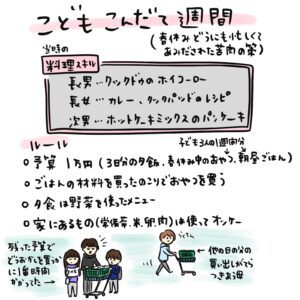 こどもこんだて週間
(春休みどうにも忙しくて
あみだされた苦肉の策)
当時の
料理スキル
長男…クックドゥのホイコーロー
長女…カレー、クックパッドのレシピ
次男…ホットケーキミックスのパンケーキ
ルール
子ども3人の1週間分
○予算 1万円(3日分の夕食、春休み中のおやつ、朝昼ごはん)
○ごはんの材料を買ったのこりでおやつを買う
○夕食は野菜を使ったメニュー
○家にあるもの(常備菜、米、卵、肉)は使ってオッケー
残った予算で
どうおかしを買うか
に1番時間
かかってた
他の日の分の
買い出しがてら
つきあう母